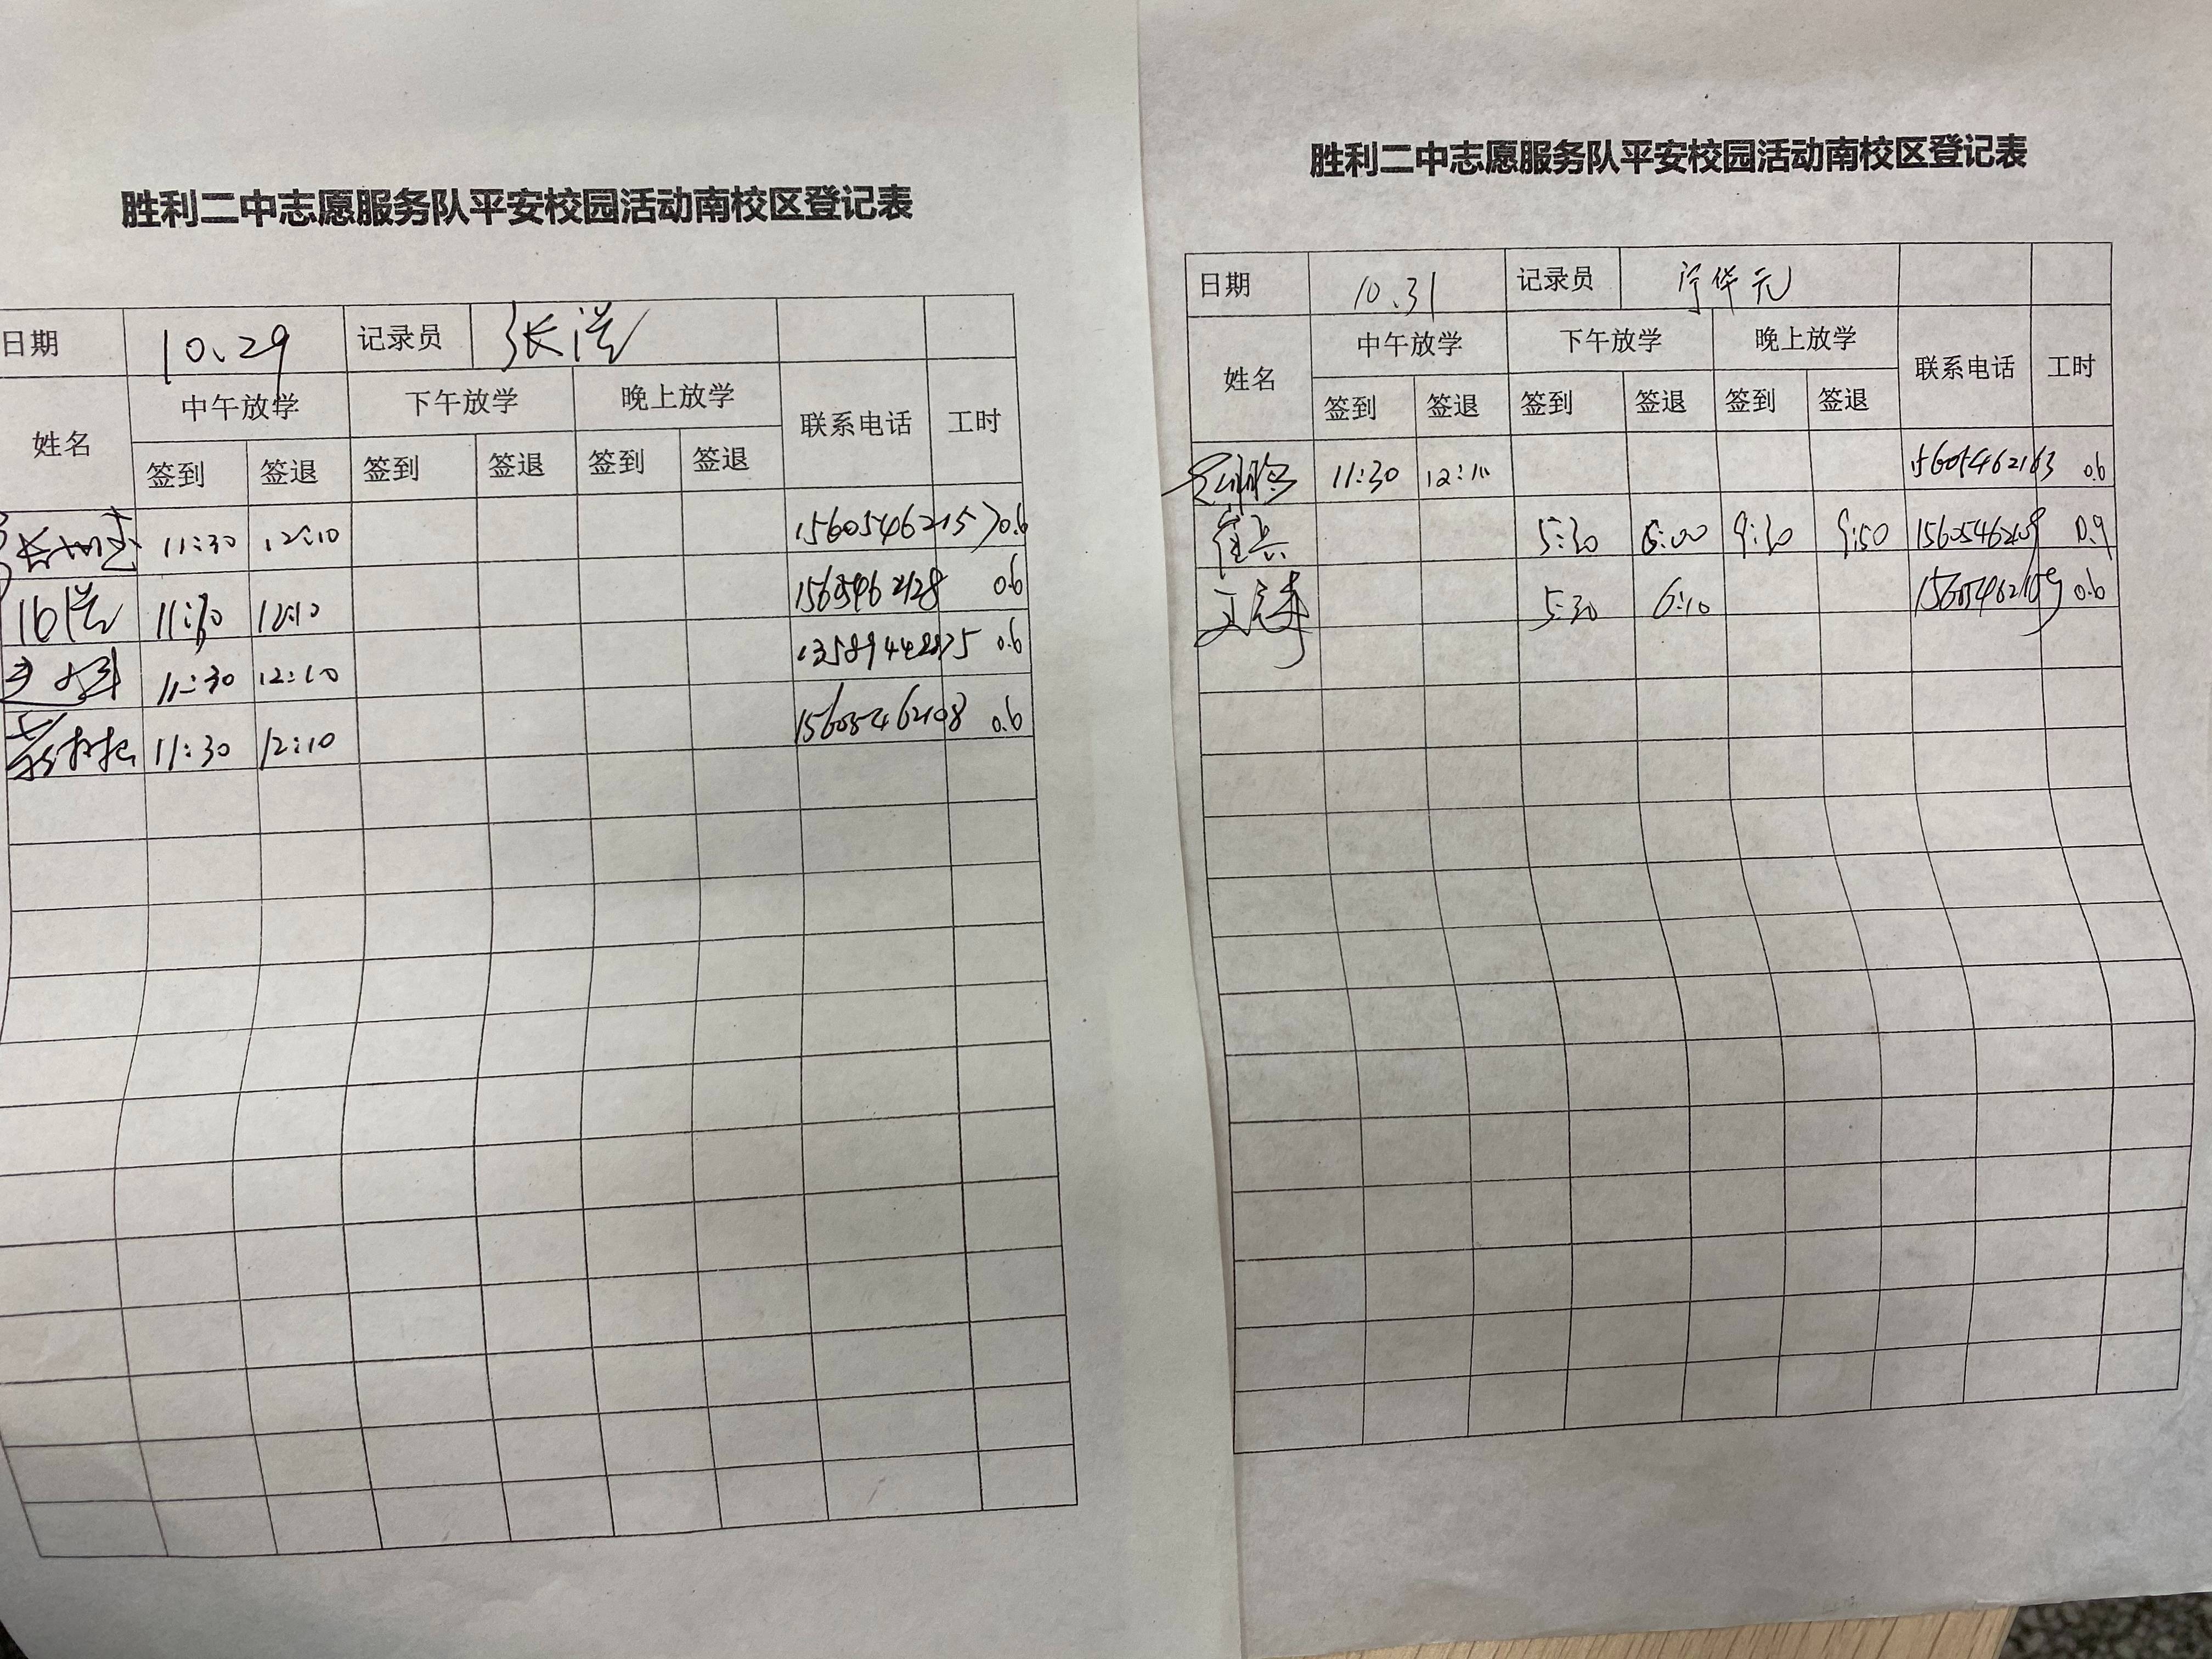 胜利二中志愿服务队平安校园活动南校区登记表
日期 10.29 记录员 张洪
姓名 中午放学 下午放学 晚上放学 联系电话 工时
签到 签退 签到 签退 签到 签退
11:30 12:10 0.6
11:30 12:10 0.6
11:30 12:10 0.6
11:30 12:10 15605462108 0.6
胜利二中志愿服务队平安校园活动南校区登记表
日期 10.31 记录员
姓名 中午放学 下午放学 晚上放学 联系电话 工时
签到 签退 签到 签退 签到 签退
11:30 12:10 15605462163 0.6
5:30 6:00 9:30 9:50 0.9
5:30 6:10 0.6